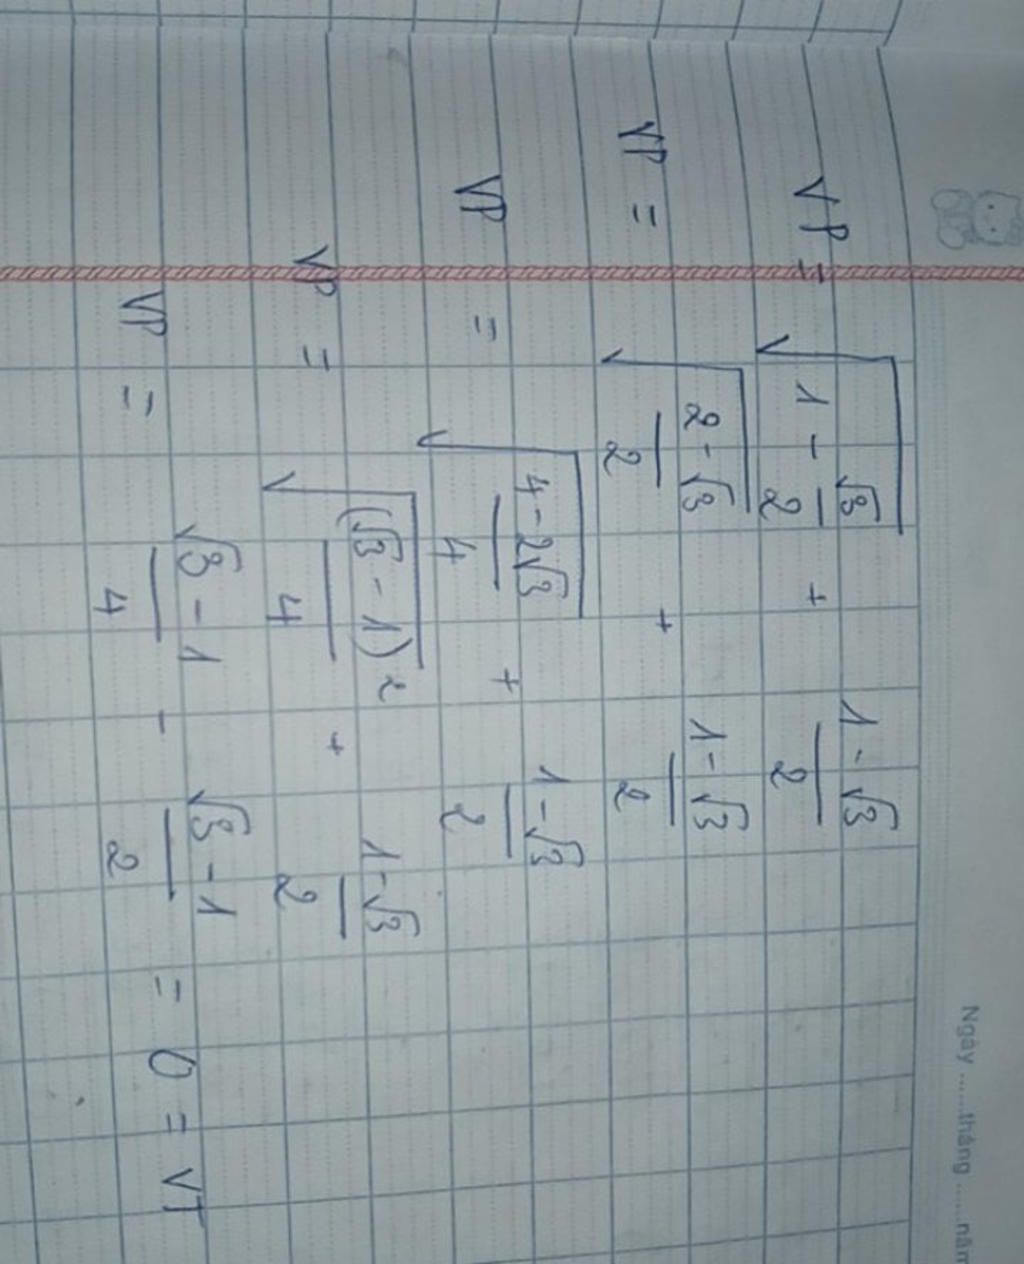 Ngày ......tháng ......năm
VP = √(1 - √3/2) + (1 - √3)/2
VP = √((2 - √3)/2) + (1 - √3)/2
VP = √((4 - 2√3)/4) + (1 - √3)/2
VP = √((√3 - 1)²/4) + (1 - √3)/2
VP = (√3 - 1)/4 - (√3 - 1)/2 = 0 = VT